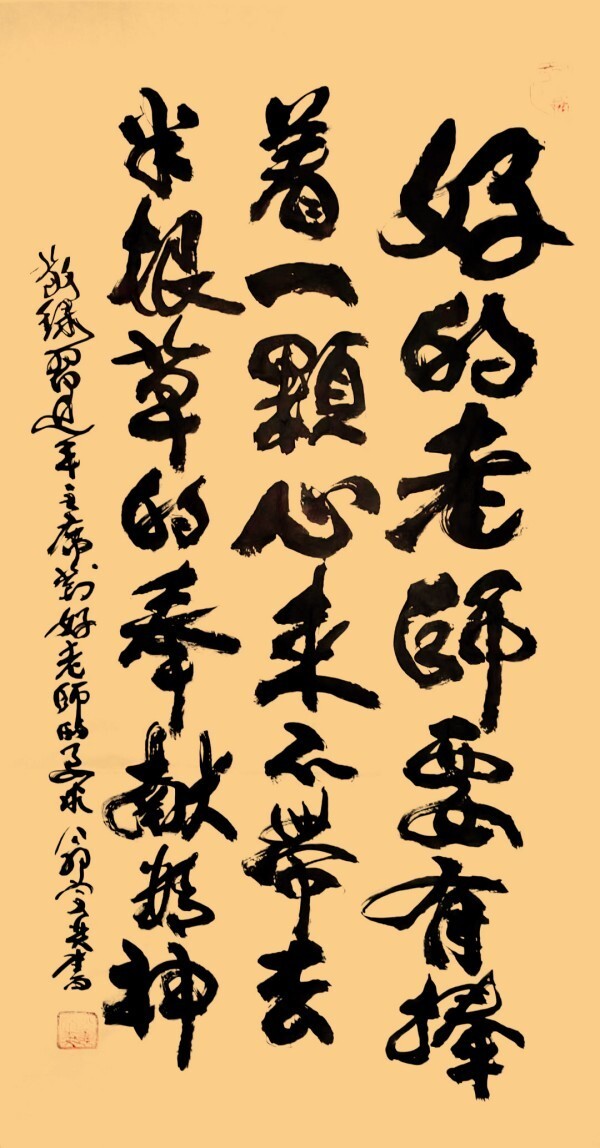 好的老師要有捧
着一顆心來不帶去
半根草的奉獻精神
敬録習近平主席對好老師的要求 書